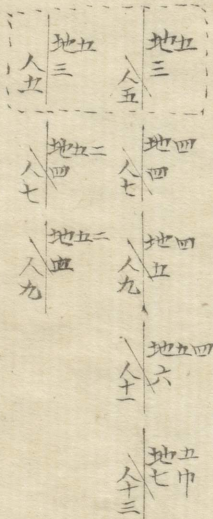 地五
三
人五
地四
四
人七
地四
五
人九
地五四
六
人十一
地五
七巾
人十三
地五
三
人五
地五二
四
人七
地五二
五
人九